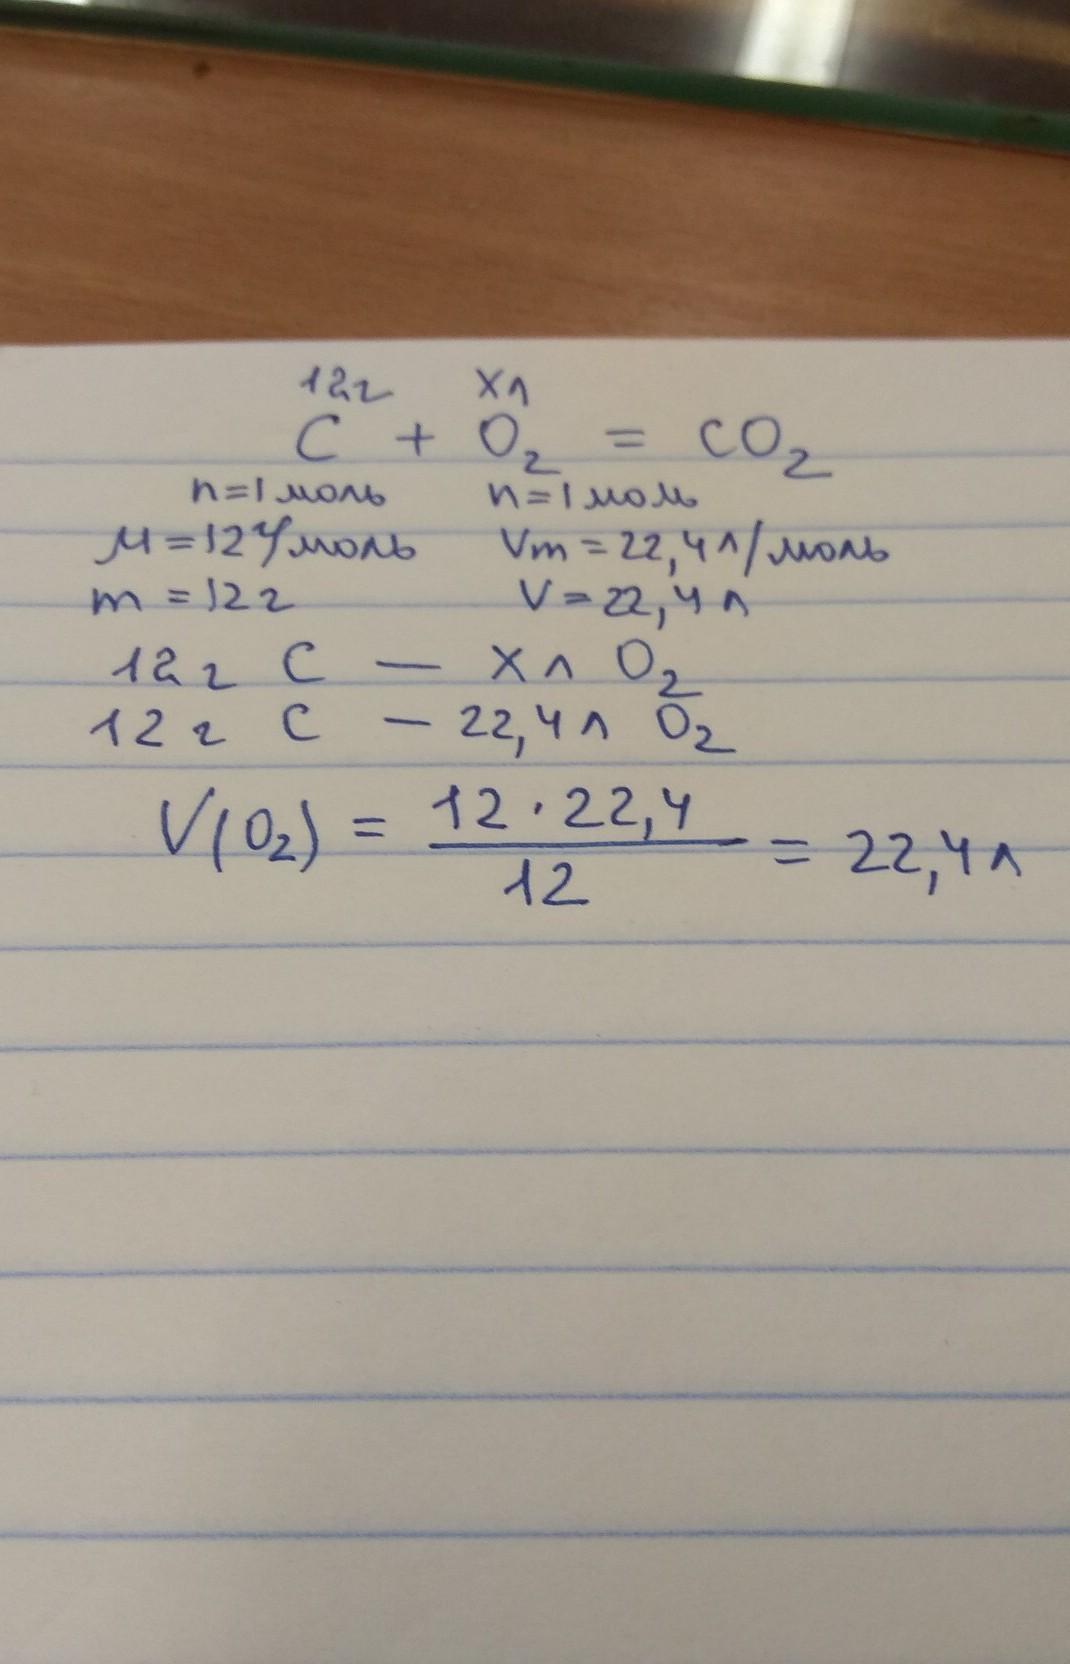 12г хл
C + O₂ = CO₂
n=1моль n=1моль
M=12г/моль Vm=22,4л/моль
m=12г V=22,4л
12г C — Хл O₂
12г C — 22,4л O₂
V(O₂) = 12·22,4 / 12 = 22,4л